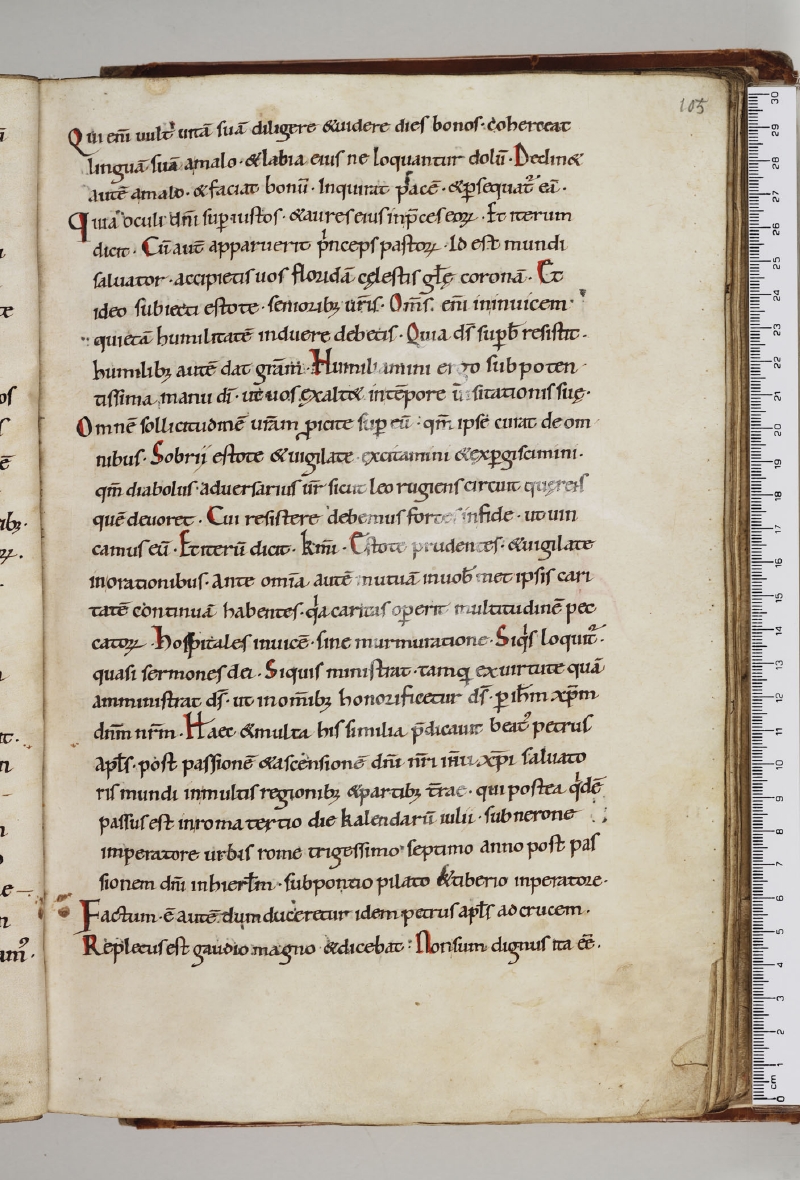 105
Qui em̄ uult uitā suā diligere &uidere dies bonos· coherceat
linguā suā amalo· &labia eius ne loquantur dolū· Declin&
autē amalo· &faciat bonū· Inquirat pacē· &ꝑsequat᷑ eā·
Quia oculi dn̄i suꝑ iustos· &aures eius inp̄ces eoꝝ· Et iterum
dicit· Cū aut̄ apparuerit pⁱnceps pastoꝝ· Id est mundi
saluator· accipietis uos floridā cęlestis gl̄ę coronā· Et
ideo subiecti estote· senioribꝫ ur̄is· Om̄s· em̄ ininuicem·
quietā humilitatē induere debetis· Quia ds̄ suꝑb̄ resistit·
humilibꝫ autē dat grām· Humiliamini ergo sub poten
tissima manu dī· ut uos exalt& intēpore uisitationis suę·
Omnē sollicitudinē ur̄am ꝓicite suꝑ eū· qm̄ ipse curat de om
nibus· Sobrii estote &uigilate excitamini &exꝑgiscimini·
qm̄ diabolus aduersarius ur̄ sicut leo rugiens circuit querens
quē deuoret· Cui resistere debemus fortes infide· ut uin
camus eū· Et iterū dicit· km̄i· Estote prudentes· &uigilate
inorationibus· Ante omīa autē mutuā inuob̄ met ipsis cari
tatē continuā habentes· qͣa caritas oꝑerit multitudinē pec
catoꝝ· Hospitales inuicē· sine murmuratione· Siqⁱs loquit᷑·
quasi sermones dei· Siquis ministrat· tamqͣ ex uirtute quā
amministrat ds̄· ut inom̄ibꝫ honorificetur ds̄· ꝑ ih̄m xp̄m
dn̄m nr̄m· Haec &multa his similia p̄dicauit beat᷒ petrus
apl̄s· post passionē &ascensionē dn̄i nr̄i ih̄u xp̄i saluato
ris mundi inmultis regionibꝫ &partibꝫ tr̄ae· qui postea qⁱdē
passus est inroma tertio die kalendarū iulii· sub nerone
imperatore urbis rome trigessimo septimo anno post pas
sionem dn̄i inhierl̄m· sub pontio pilato &tiberio inperatore·
Factum· ē autē dum duceretur idem petrus apl̄s ad crucem·
Repletus est gaudio magno &dicebat· Non sum dignus ita eē·